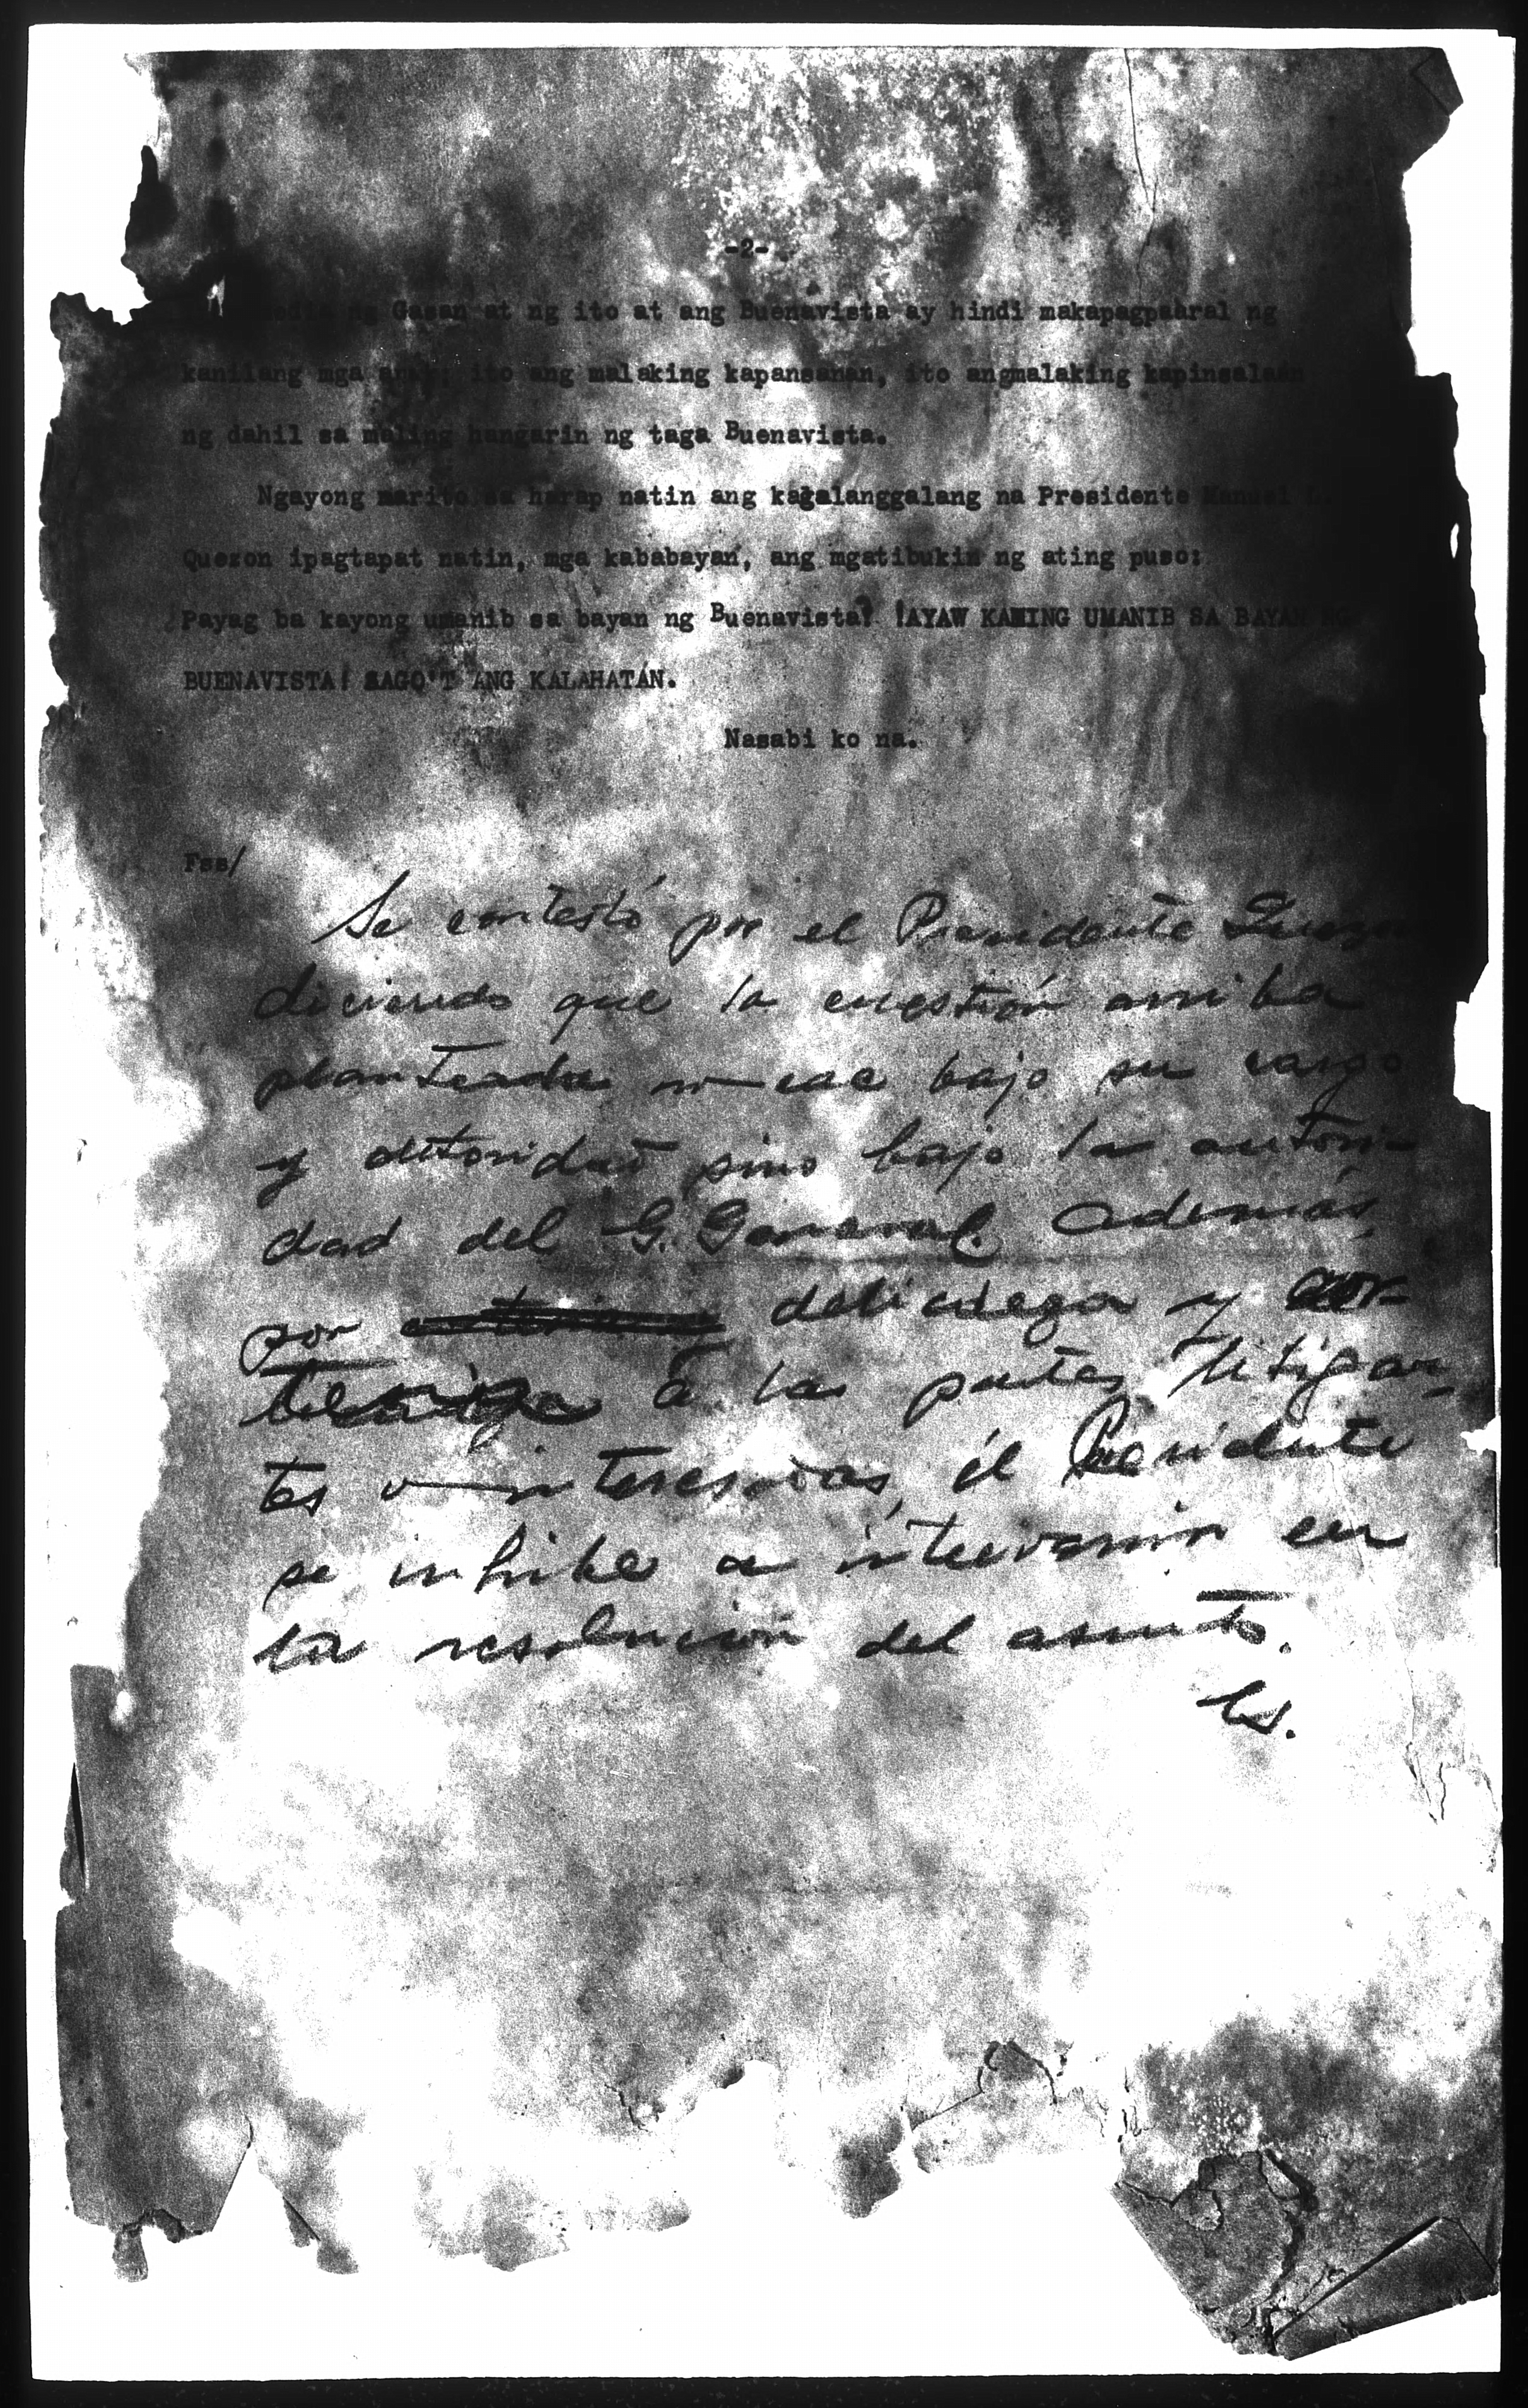 -2-
ng Gasan at ng ito at ang Buenavista ay hindi makapagpaaral ng
kanilang mga anak; ito ang malaking kapansanan, ito angmalaking kapinsalaan
ng dahil sa maling hangarin ng taga Buenavista.
Ngayong narito sa harap natin ang kagalanggalang na Presidente Manuel L.
Quezon ipagtapat natin, mga kababayan, ang mgatibukin ng ating puso:
Payag ba kayong umanib sa bayan ng Buenavista? !AYAW KAMING UMANIB SA BAYAN NG
BUENAVISTA! SAGO'T ANG KALAHATAN.
Nasabi ko na.
Fss/
Se contestó por el Presidente Quezon
diciendo que la cuestión arriba
planteada no cae bajo su cargo
y autoridad sino bajo la autori-
dad del G. General. Además,
por delicadeza y cor-
a las partes litigan-
tes o interesadas, él Presidente
se inhibe a intervenir en
la resolución del asunto.